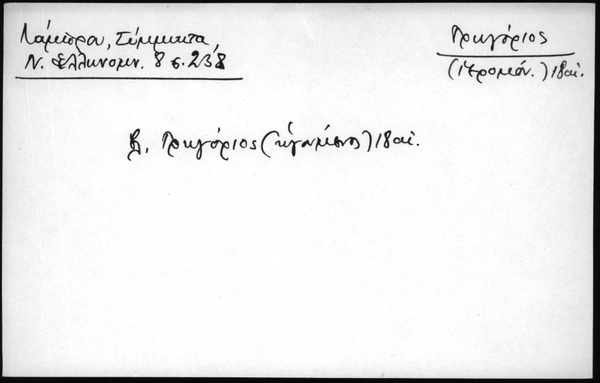 Λάμπρου, Σύμμικτα,
Ν. Ἑλληνομν. 8 σ. 238
Γρηγόριος
(ἱερομόν.) 18 αἰ.
Βλ. Γρηγόριος (ἡγούμενος) 18 αἰ.